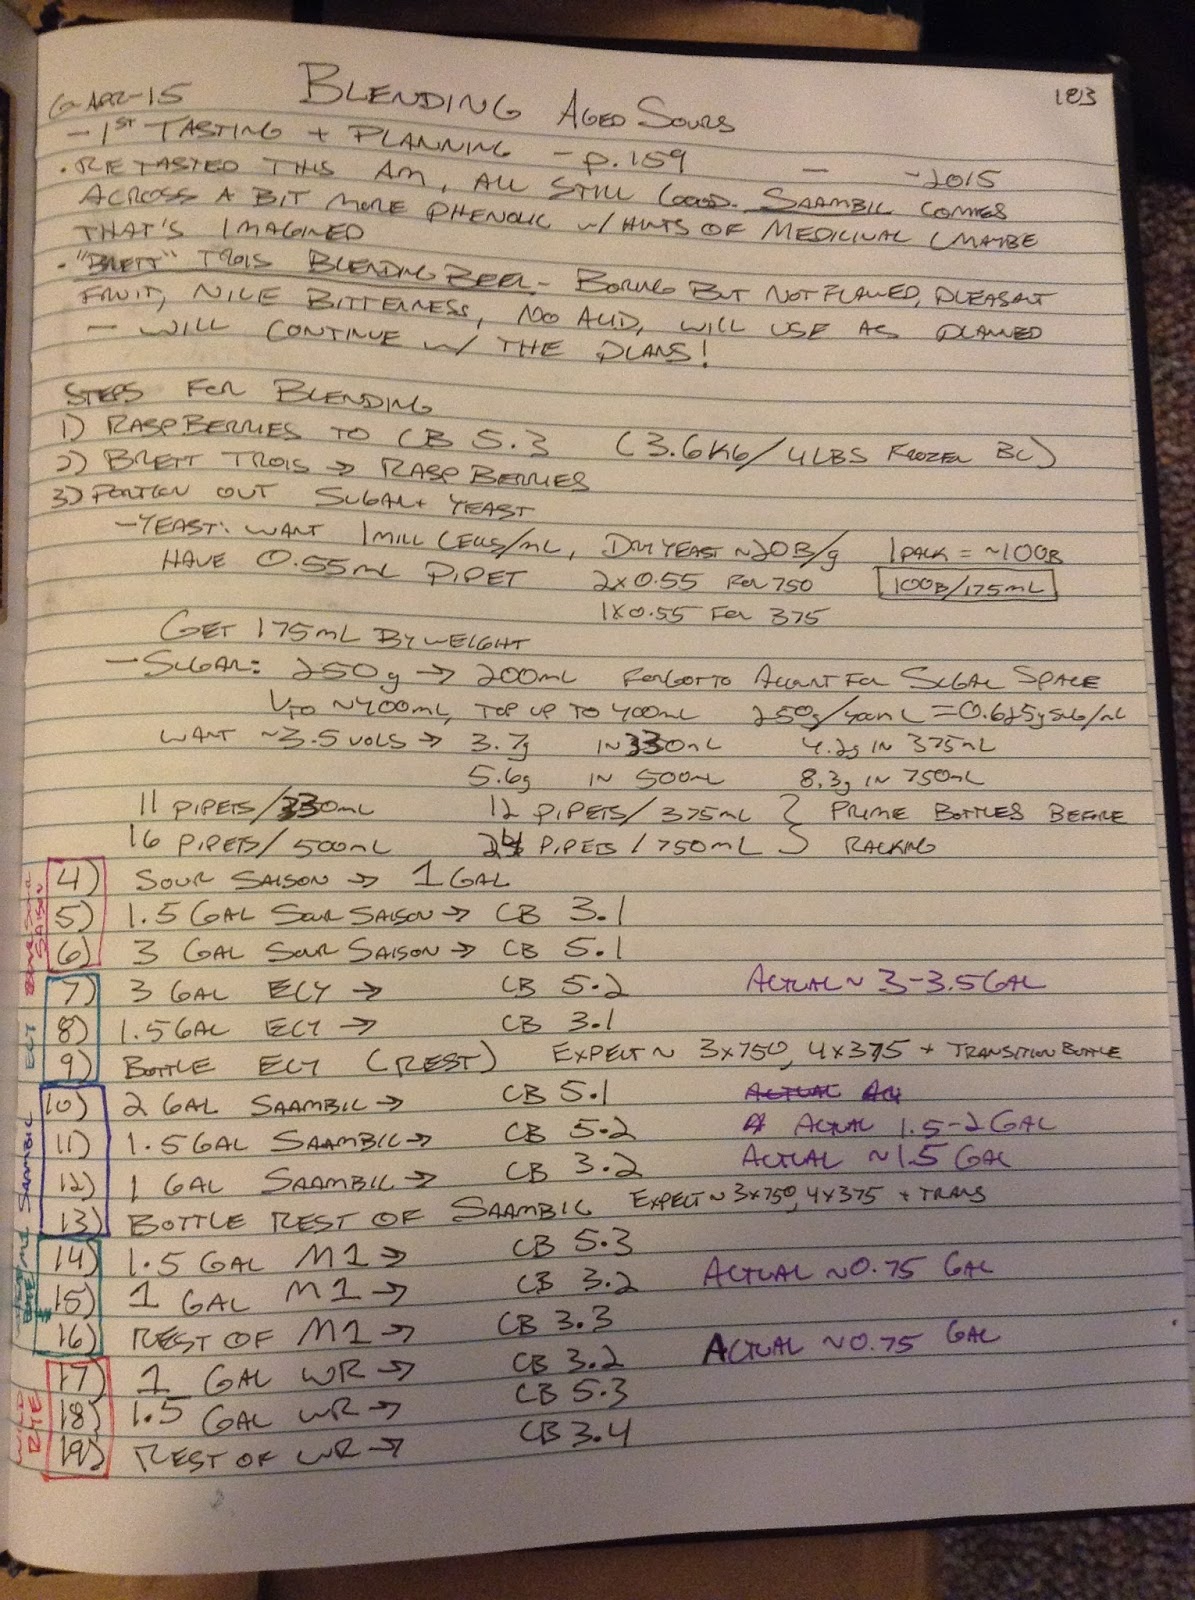 6-APR-15 BLENDING AGED SOURS 183
- 1ST TASTING + PLANNING - p.159 - -2015
• RETASTED THIS AM, ALL STILL GOOD. SAAMBIC COMES
ACROSS A BIT MORE PHENOLIC w/ HINTS OF MEDICINAL (MAYBE
THAT'S IMAGINED
• "BRETT" TROIS BLENDING BEER - BORING BUT NOT FLAWED, PLEASANT
FRUIT, NICE BITTERNESS, NO ACID, WILL USE AS PLANNED
- WILL CONTINUE w/ THE PLANS!
STEPS FOR BLENDING
1) RASPBERRIES TO CB 5.3 (3.6KG/4LBS FROZEN BC)
2) BRETT TROIS → RASPBERRIES
3) PORTION OUT SUGAR + YEAST
- YEAST: WANT 1MILL CELLS/mL, DRY YEAST ~20B/g 1 PACK = ~100B
HAVE 0.55mL PIPET 2x0.55 FOR 750 100B/175mL
1x0.55 FOR 375
GET 175mL BY WEIGHT
- SUGAR: 250g → 200mL FORGOT TO ACCOUNT FOR SUGAR SPACE
TO ~400mL, TOP UP TO 400mL 250g/400mL = 0.625g SUG/mL
WANT ~3.5 VOLS → 3.7g IN 330mL 4.2g IN 375mL
5.6g IN 500mL 8.3g IN 750mL
11 PIPETS/330mL 12 PIPETS/375mL } PRIME BOTTLES BEFORE
16 PIPETS/500mL 24 PIPETS/750mL } RACKING
4) SOUR SAISON → 1 GAL
5) 1.5 GAL SOUR SAISON → CB 3.1
6) 3 GAL SOUR SAISON → CB 5.1
SAISON
7) 3 GAL ECY → CB 5.2 ACTUAL ~ 3-3.5 GAL
8) 1.5 GAL ECY → CB 3.1
9) BOTTLE ECY (REST) EXPECT ~ 3x750, 4x375 + TRANSITION BOTTLE
ECY
10) 2 GAL SAAMBIC → CB 5.1 ACTUAL
11) 1.5 GAL SAAMBIC → CB 5.2 ACTUAL 1.5-2 GAL
12) 1 GAL SAAMBIC → CB 3.2 ACTUAL ~1.5 GAL
13) BOTTLE REST OF SAAMBIC EXPECT ~ 3x750, 4x375 + TRANS
SAAMBIC
14) 1.5 GAL M1 → CB 5.3
15) 1 GAL M1 → CB 3.2 ACTUAL ~0.75 GAL
16) REST OF M1 → CB 3.3
17) 1 GAL WR → CB 3.2 ACTUAL ~0.75 GAL
18) 1.5 GAL WR → CB 5.3
19) REST OF WR → CB 3.4
WILD
RYE